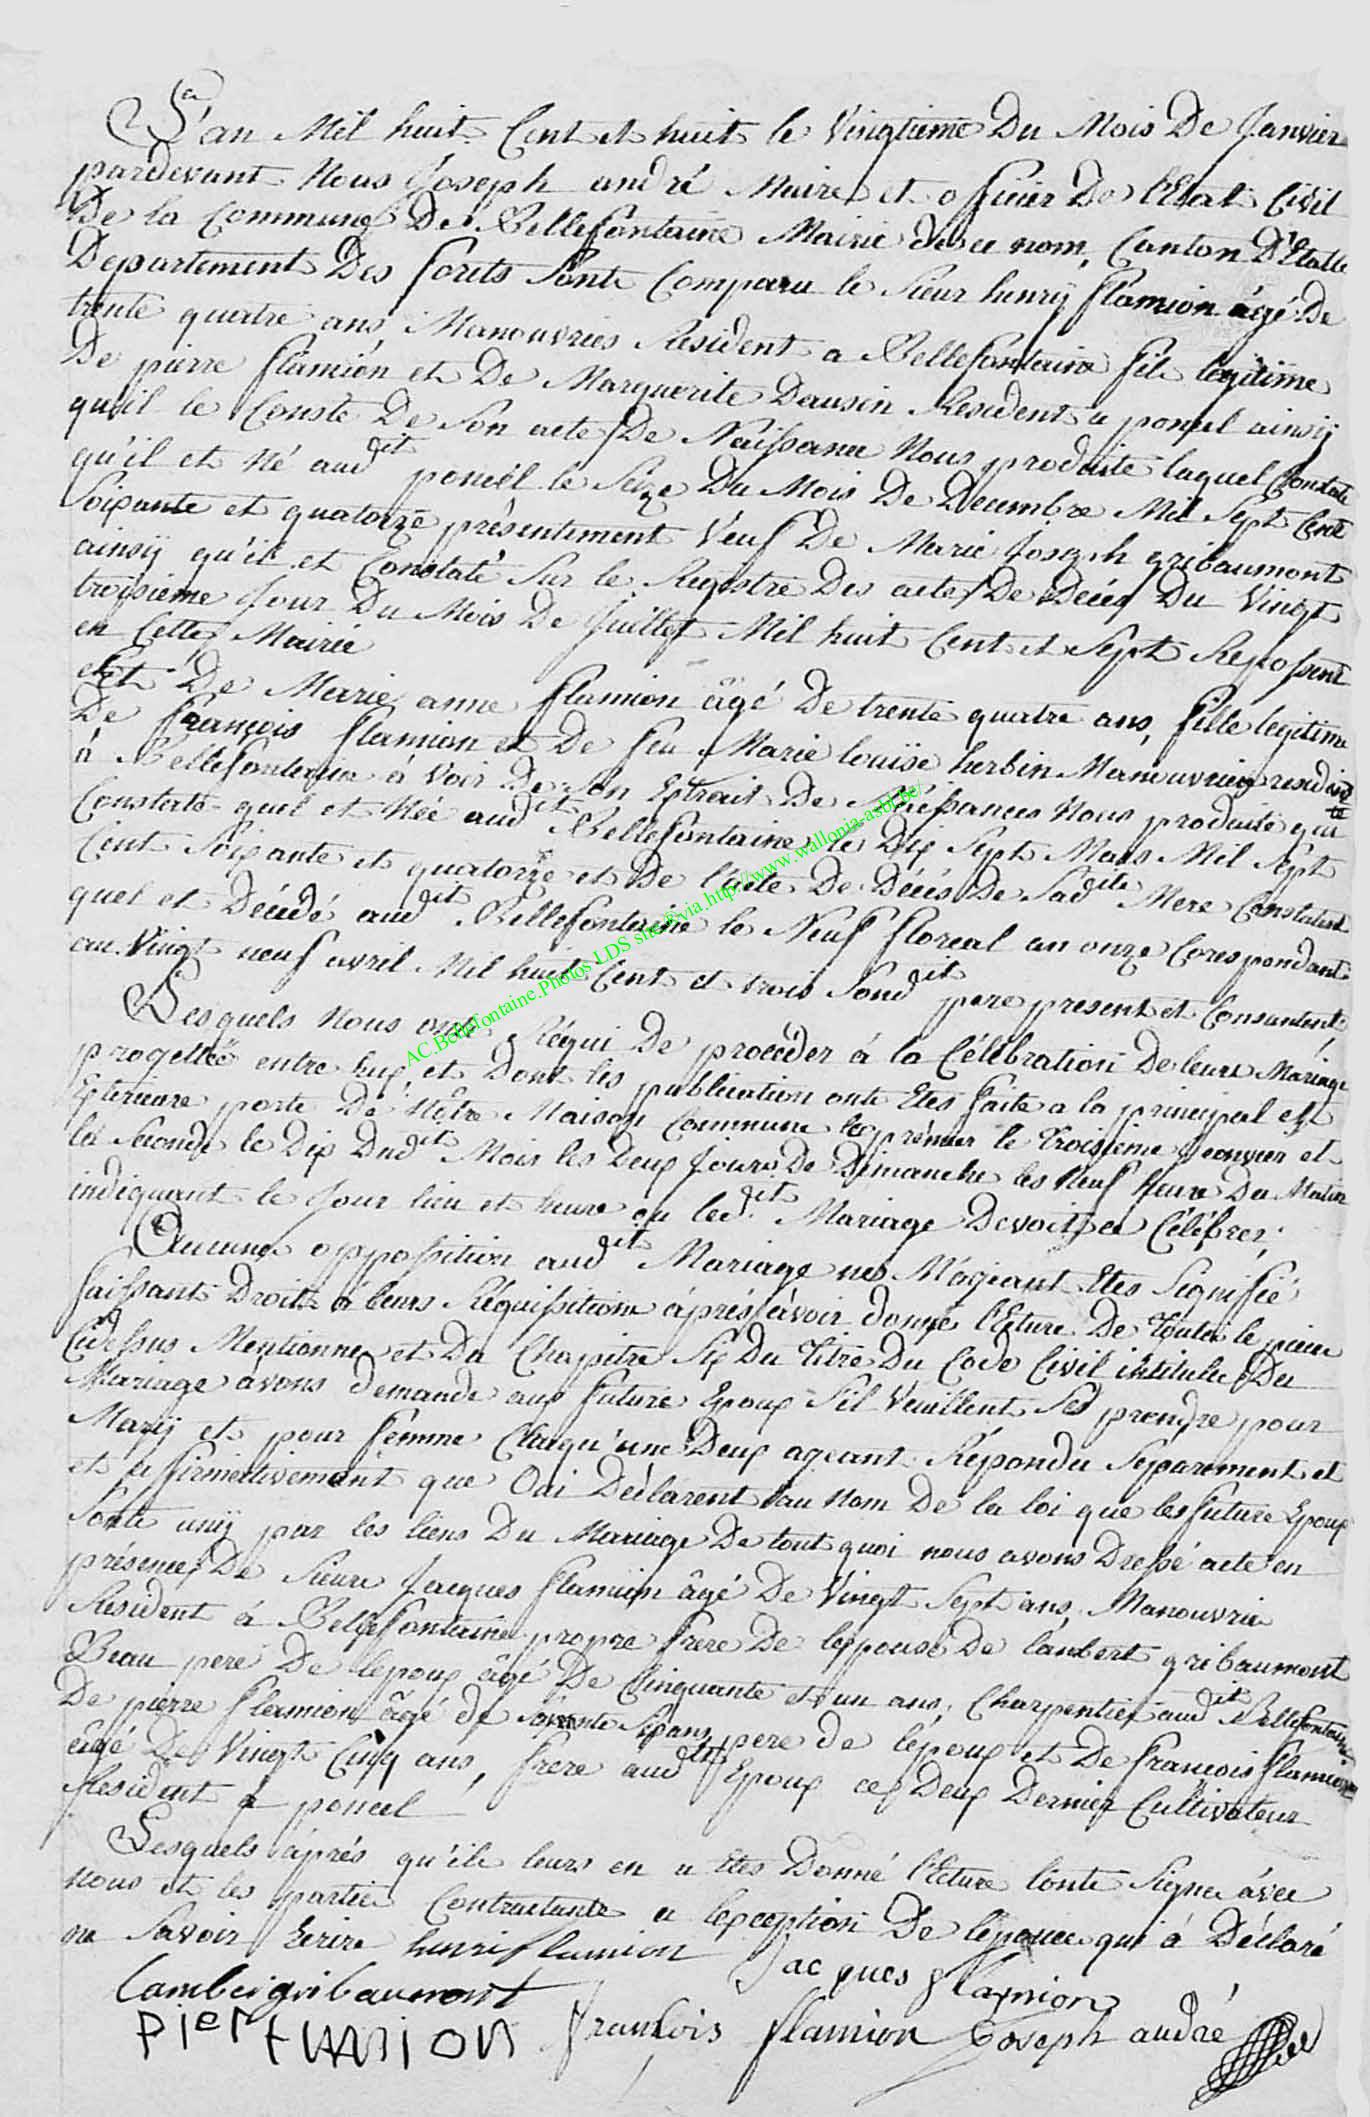 L'an Mil huit Cent et huit le Vingtieme Du Mois De Janvier
pardevant Nous Joseph andré Maire et officier De l'Etat Civil
De la Commune De Bellefontaine Mairie de ce nom, Canton D'Etalle
Departement Des forets Sont Comparu le Sieur henrij flamion âgé De
trente quatre ans, Manouvrier Resident a Bellefontaine fils legitime
De pierre flamion et De Marguerite Dausin Resident a poncel ainsij
qu'il le Conste De Son acte De Naissance Nous produite laquel Constate
qu'il et Né audit poncel le Seize Du Mois De Decembre Mil Sept Cent
Soixante et quatorze présentement Veuf De Marie Joseph gribaumont
ainsij qu'il et Constaté Sur le Registre Des acte De Décés Du Vingt
troisieme Jour Du Mois De Juillet Mil huit Cent et Sept Reposent
en Cette Mairie
et De Marie anne flamion âgé De trente quatre ans, fille legitime
De françois flamion et De feu Marie louise herbin Manouvrier resident
à Bellefontaine à Voir De Son Extrait De Naissances Nous produite qui
Constate quel et Née audit Bellefontaine le Dix Sept Mars Mil Sept
Cent Soixante et quatorze et De l'acte De Décés De Sadite Mere Constatant
quel et Décédé audit Bellefontaine le Neuf floreal an onze Corespondant
au Vingt neuf avril Mil huit Cent et trois Sondit pere present et Consentent
Lesquels Nous ont Réqui De proceder à la Célébration De leur Mariage
progettée entre eux et Dont les publication ont Etes faite a la principal et
Exterieure porte De Nôtre Maison Commune le prémier le Troisieme Janvier et
la Seconde le Dix Dudit Mois les Deux Jours De Dimanche les Neuf heure Du Matin
indiquant le Jour lieu et heure ou ledit Mariage Devoit Célébrer;
Aucune opposition audit Mariage nes M'ageant Etes Signifié
faissant Droit à leurs Réquisition après avoir donné l'Ecture De Toute le piece
Cidessus Mentionner et Du Chapitre Six Du Titre Du Code Civil intitulée Du
Mariage avons demande aux future Epoux S'il Veuillent Se prendre pour
Marij et pour femme Chaqu'une Deux ageant Répondu Separement et
et affirmativement que Oui Déclarent au nom De la loi que les future Epoux
Sont unij par les liens Du Mariage De tout quoi nous avons Dressé acte en
présence De Sieur Jacques flamion âgé De Vingt Sept ans, Manouvrie
Resident à Bellefontaine propre frere De l'epouse De lambert gribaumont
Beau pere De l'epoux âgé De Cinquante et un ans, Charpentier audit Bellefontaine
De pierre flamion âgé de Soixante Six ans, pere de l'epoux et De françois flamion
âgé De Vingt Cinq ans, frere audit Epoux ces Deux Dernier Cultivateur
Resident a poncel
Lesquels aprés qu'ils leurs en a Etes Donné l'Ecture l'ont Signe àvec
nous et les partie Contractante a l'exception De l'epouse qui à Déclaré
ne Savoir Ecrire henri flamion Jacques flamion
Lamber gribaumont
françois flamion Joseph andré
AC.Bellefontaine.Photos LDS site®via.http://www.wallonia-asbl.be/